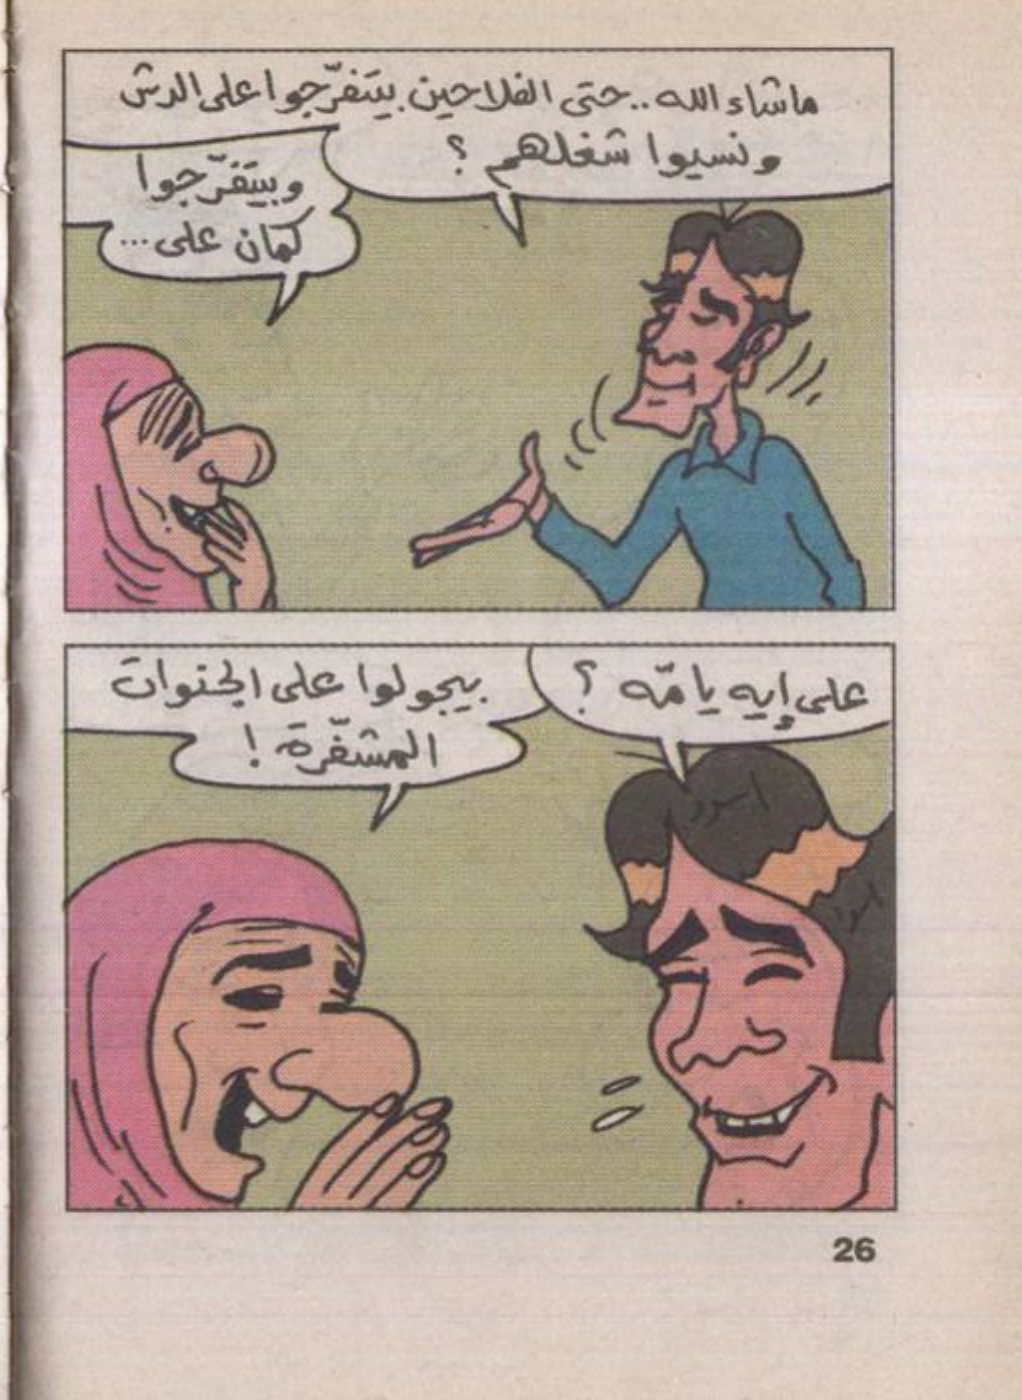 ماشاء الله.. حتى الفلاحين بيتفرّجوا على الدش
ونسيوا شغلهم ؟
وبيتفرّجوا
كمان على ...
على إيه يا مّه ؟
بيجولوا على الجنوات
المشفّرة !
اسود
اسود
26